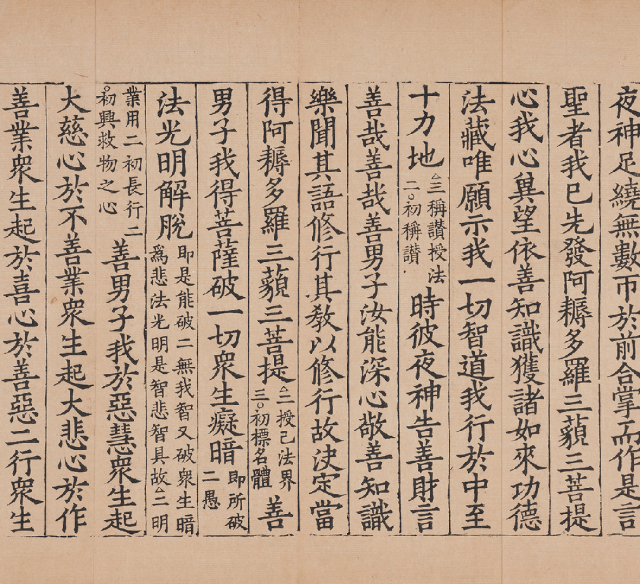 夜神足繞無數帀於前合掌而作是言
聖者我已先發阿耨多羅三藐三菩提
心我心兾望依善知識獲諸如來功德
法藏唯願示我一切智道我行於中至
十力地△三稱讃授法二。初稱讃時彼夜神告善財言
善哉善哉善男子汝能深心敬善知識
樂聞其語修行其教以修行故決定當
得阿耨多羅三藐三菩提△三授己法界三。初標名體善
男子我得菩薩破一切衆生癡暗即所破二愚
法光明解脫即是能破二無我智又破衆生暗爲悲法光明是智悲智具故△二明
業用二初長行二。初興救物之心善男子我於惡慧衆生起
大慈心於不善業衆生起大悲心於作
善業衆生起於喜心於善惡二行衆生